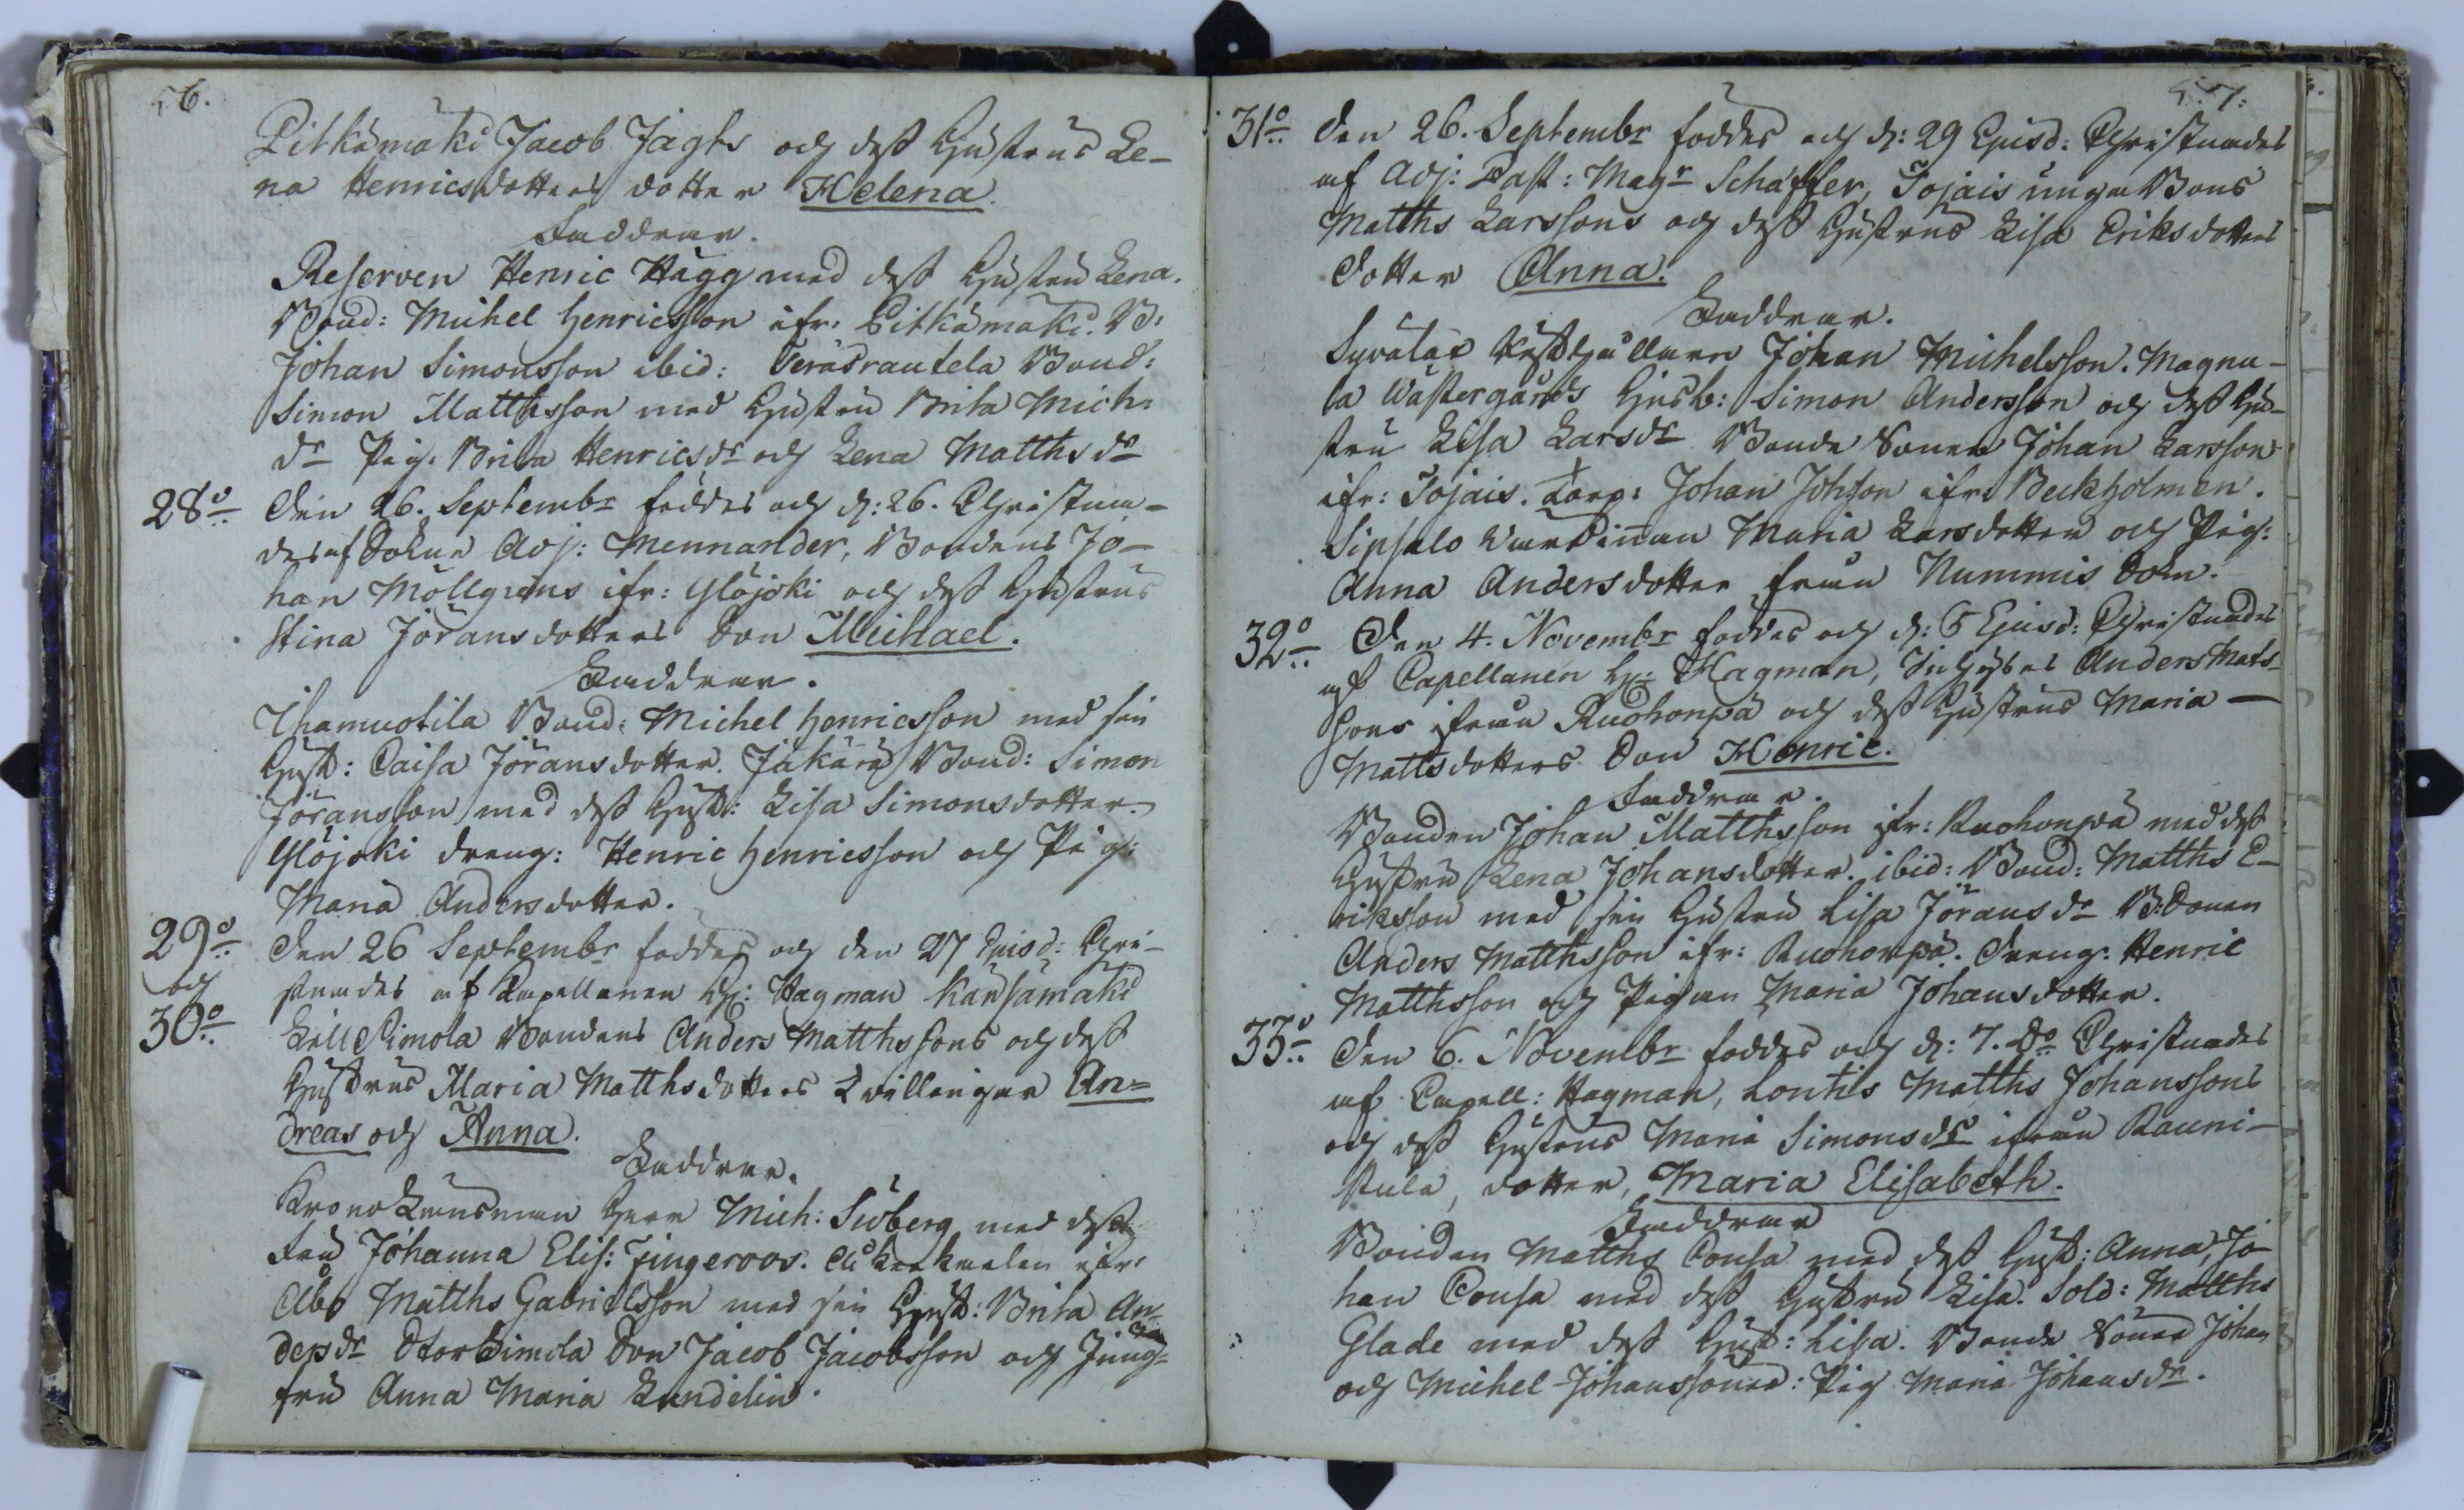 56.
Pitkämäki Jacob Jägts och dess Hustrus Le-
na Henricsdotters dotter Helena.
Faddrar.
Reserven Henric Hägg med dess Hustru Lena.
Bond: Michel Henricsson ifr: Pitkämäki. B:
Johan Simonsson ibid: Teräsrautela Bond:
Simon Matthsson med Hustru Brita Mich:
dr Pig. Brita Henricsdr och Lena Matthsdr
28o Den 26. Septembr föddes och d: 26. Christna-
des af Sokne Adj: Mennander, Bondens Jo-
han Möllgrens ifr: Ylöjoki och dess Hustrus
Stina Jöransdotters Son Michael.
Faddrar.
Ihamuotila Bond: Michel Henricsson med sin
Hust: Caisa Jöransdotter. Jäkärä Bond: Simon
Jöransson med dess Hust: Lisa Simonsdotter.
Ylöjoki dreng: Henric Henricsson och Pig:
Maria Andersdotter.
29o Den 26 Septembr föddes och den 27 Ejusd: Chri-
och stnades af Capellanen H: Hagman Kärsämäki
30o Lill Simola Bondens Anders Matthssons och dess
Hustrus Maria Matthsdotters Tvillingar An=
dreas och Anna.
Faddrar.
Krono Länsman Herr Mich: Siöberg med dess
Fru Johanna Elis: Fingeroos. ifr:
Åbo Matths Gabrielsson med sin Hust: Brita An-
dersdr Stor Simola Son Jacob Jacobsson och Jung-
fru Anna Maria Lundelin.
57.
31o Den 26. Septembr föddes och d: 29 Ejusd: Christnades
af Adj: Past: Magr Schäffer, Tojais unga Bons
Matths Larssons och dess Hustrus Lisa Eriksdotters
dotter Anna.
Faddrar.
Johan Michelsson. Magnu-
la Wästergårds Husb: Simon Andersson och dess Hu-
stru Lisa Larsdr Bonde Sonen Johan Larsson
ifr: Tojais. Torp: Johan Johsson ifr: Beckholmen.
Sipsalo Wärdinnan Maria Larsdotter och Pig:
Anna Andersdotter från Nummis Sokn.
32o Den 4. Novembr föddes och d: 5 Ejusd: Christnades
af Capellanen H: Hagman, Inhyses Anders Mats-
sons ifrån Ruohonpä och dess Hustrus Maria
Mattsdotters Son Henric.
Faddrar.
Bonden Johan Matthsson ifr: Ruohonpä med dess
Hustru Lena Johansdotter. ibid: Bond: Matths E-
riksson med sin Hustru Lisa Jöransdr B: Sonen
Anders Matthsson ifr: Ruohonpä. Dreng: Henric
Matthsson och Pigan Maria Johansdotter.
33o Den 6. Novembr föddes och d: 7. do Christnades
af Capell: Hagman, Lontis Matths Johanssons
och dess Hustrus Maria Simonsdr ifrån Rauni-
stula, dotter, Maria Elisabeth.
Faddrar
Bonden Matths Consa med dess Hust: Anna, Jo-
han Consa med dess Hustru Lisa. Sold: Matths
Glade med dess Hust: Lisa. Bonde Söner Johan
och Michel Johanssöner: Pig Maria Johansdr.